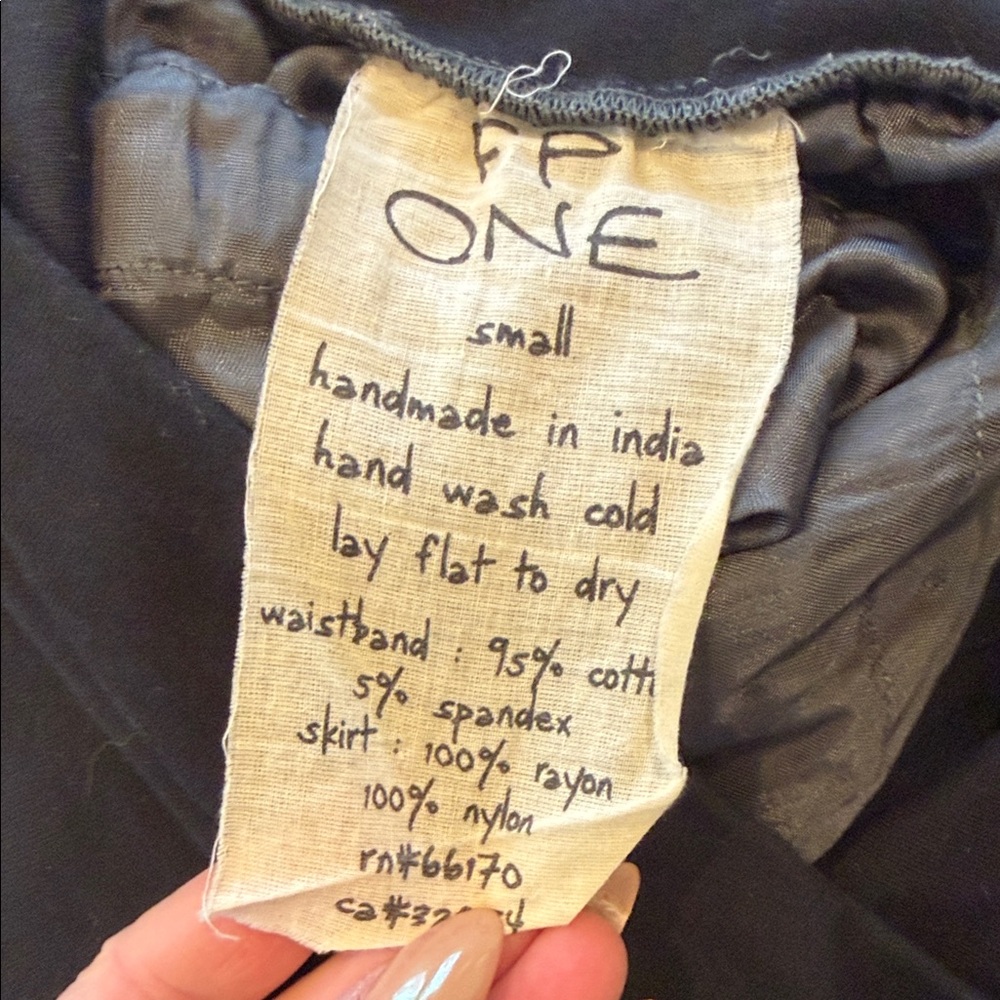 FP
ONE
small
handmade in india
hand wash cold
lay flat to dry
waistband : 95%
5% spandex
skirt : 100% rayon
100% nylon
rn#66170